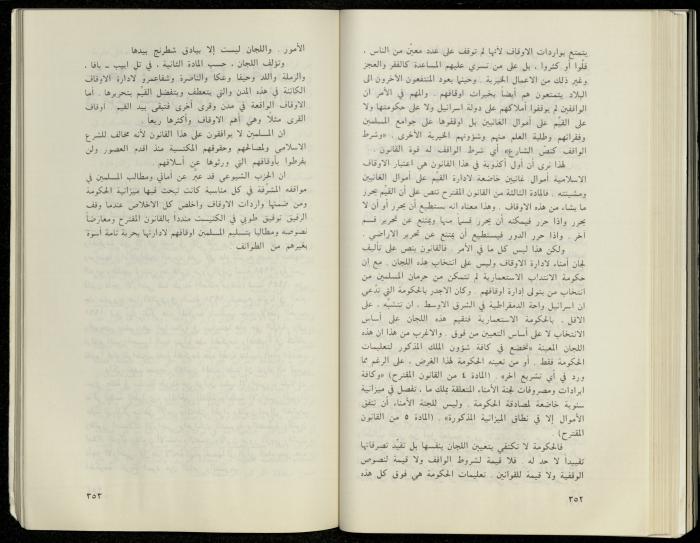 يتمتع بواردات الاوقاف لأنها لم توقف على عدد معيّن من الناس ،
قلّوا أو كثروا ، بل على من تسري عليهم المساعدة كالفقر والعجز
وغير ذلك من الاعمال الخيرية . وحينما يعود المنتفعون الآخرون الى
البلاد يتمتعون هم أيضاً بخيرات اوقافهم . والمهم في الأمر ان
الواقفين لم يوقفوا أملاكهم على دولة اسرائيل ولا على حكومتها ولا
على القيّم على أموال الغائبين بل اوقفوها على جوامع المسلمين
وفقرائهم وطلبة العلم منهم وشؤونهم الخيرية الأخرى . «وشرط
الواقف كنصّ الشارع» أي شرط الواقف له قوة القانون .
لهذا نرى أن أول أكذوبة في هذا القانون هي اعتبار الاوقاف
الاسلامية أموال غائبين خاضعة لادارة القيّم على أموال الغائبين
ومشيئته . فالمادة الثالثة من القانون المقترح تنص على أن القيّم يحرر
ما يشاء من هذه الاوقاف . وهذا معناه انه يستطيع أن يحرر أو أن لا
يحرر واذا حرر فيمكنه أن يحرر قسماً منها ويمتنع عن تحرير قسم
آخر . واذا حرر الدور فيستطيع أن يمتنع عن تحرير الاراضي .
ولكن هذا ليس كل ما في الأمر . فالقانون ينص على تأليف
لجان أمناء لادارة الاوقاف وليس على انتخاب هذه اللجان . مع إن
حكومة الانتداب الاستعمارية لم تتمكن من حرمان المسلمين من
انتخاب من يتولى إدارة اوقافهم . وكان الاجدر بالحكومة التي تدّعي
ان اسرائيل واحة الدمقراطية في الشرق الاوسط ، ان تتشبّه ، على
الاقل ، بالحكومة الاستعمارية فتقيم هذه اللجان على أساس
الانتخاب لا على أساس التعيين من فوق . والاغرب من هذا ان هذه
اللجان المعينة «تخضع في كافة شؤون الملك المذكور لتعليمات
الحكومة فقط ، أو من تعينه الحكومة لهذا الغرض ، على الرغم مما
ورد في أي تشريع آخر» . (المادة ٤ من القانون المقترح) «وكافة
ايرادات ومصروفات لجنة الأمناء المتعلقة بملك ما ، تفصل في ميزانية
سنوية خاضعة لمصادقة الحكومة . وليس للجنة الأمناء أن تنفق
الأموال إلا في نطاق الميزانية المذكورة» . (المادة ٥ من القانون
المقترح)
فالحكومة لا تكتفي بتعيين اللجان بنفسها بل تقيّد تصرفاتها
تقييداً لا حد له . فلا قيمة لشروط الواقف ولا قيمة لنصوص
الوقفية ولا قيمة للقوانين . تعليمات الحكومة هي فوق كل هذه
٣٥٢
الأمور . واللجان ليست إلا بيادق شطرنج بيدها .
وتؤلف اللجان ، حسب المادة الثانية ، في تل ابيب – يافا ،
والرملة واللد وحيفا وعكا والناصرة وشفاعمرو لادارة الاوقاف
الكائنة في هذه المدن والتي يتعطف ويتفضل القيّم بتحريرها . أما
الاوقاف الواقعة في مدن وقرى أخرى فتبقى بيد القيم . أوقاف
القرى مثلاً وهي أهم الاوقاف وأكثرها ريعاً .
ان المسلمين لا يوافقون على هذا القانون لأنه مخالف للشرع
الاسلامي ولمصالحهم وحقوقهم المكتسبة منذ اقدم العصور ولن
يفرطوا بأوقافهم التي ورثوها عن أسلافهم .
ان الحزب الشيوعي قد عبر عن أماني ومطالب المسلمين في
مواقفه المشرّفة في كل مناسبة كانت تبحث فيها ميزانية الحكومة
ومن ضمنها واردات الاوقاف واخلص كل الاخلاص عندما وقف
الرفيق توفيق طوبي في الكنيست منددا بالقانون المقترح ومعارضاً
نصوصه ومطالبا بتسليم المسلمين اوقافهم لادارتها بحرية تامة أسوة
بغيرهم من الطوائف .
٣٥٣